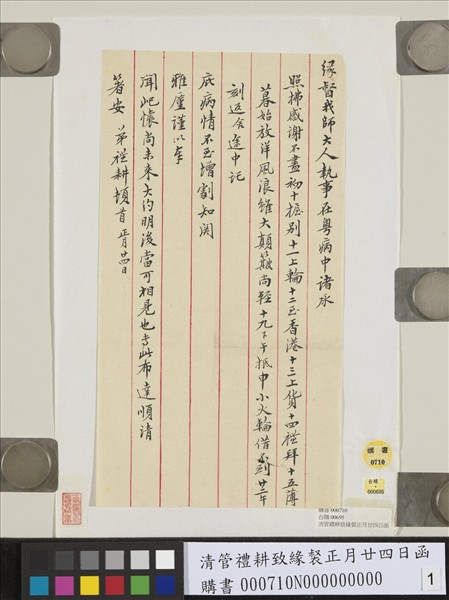 緣督我師大人執事在粵病中諸承
照拂感謝不盡初十握别十一上輪十二至香港十三上貨十四禮拜十五薄
暮始放洋風浪雖大顛簸尚輕十九下午抵申小火輪借到廿二午
刻返舍途中託
庇病情不至增劇知関
雅廑謹以奉
聞屺懷尚未来大約明後當可相見也専此布達順請
著安 弟禮耕頓首 正月廿四日
購書
0710
台購
000695
購書 000710
台購 00695
清管禮耕致緣製正月廿四日函
清管禮耕致緣製正月廿四日函
購書 000710N000000000
1